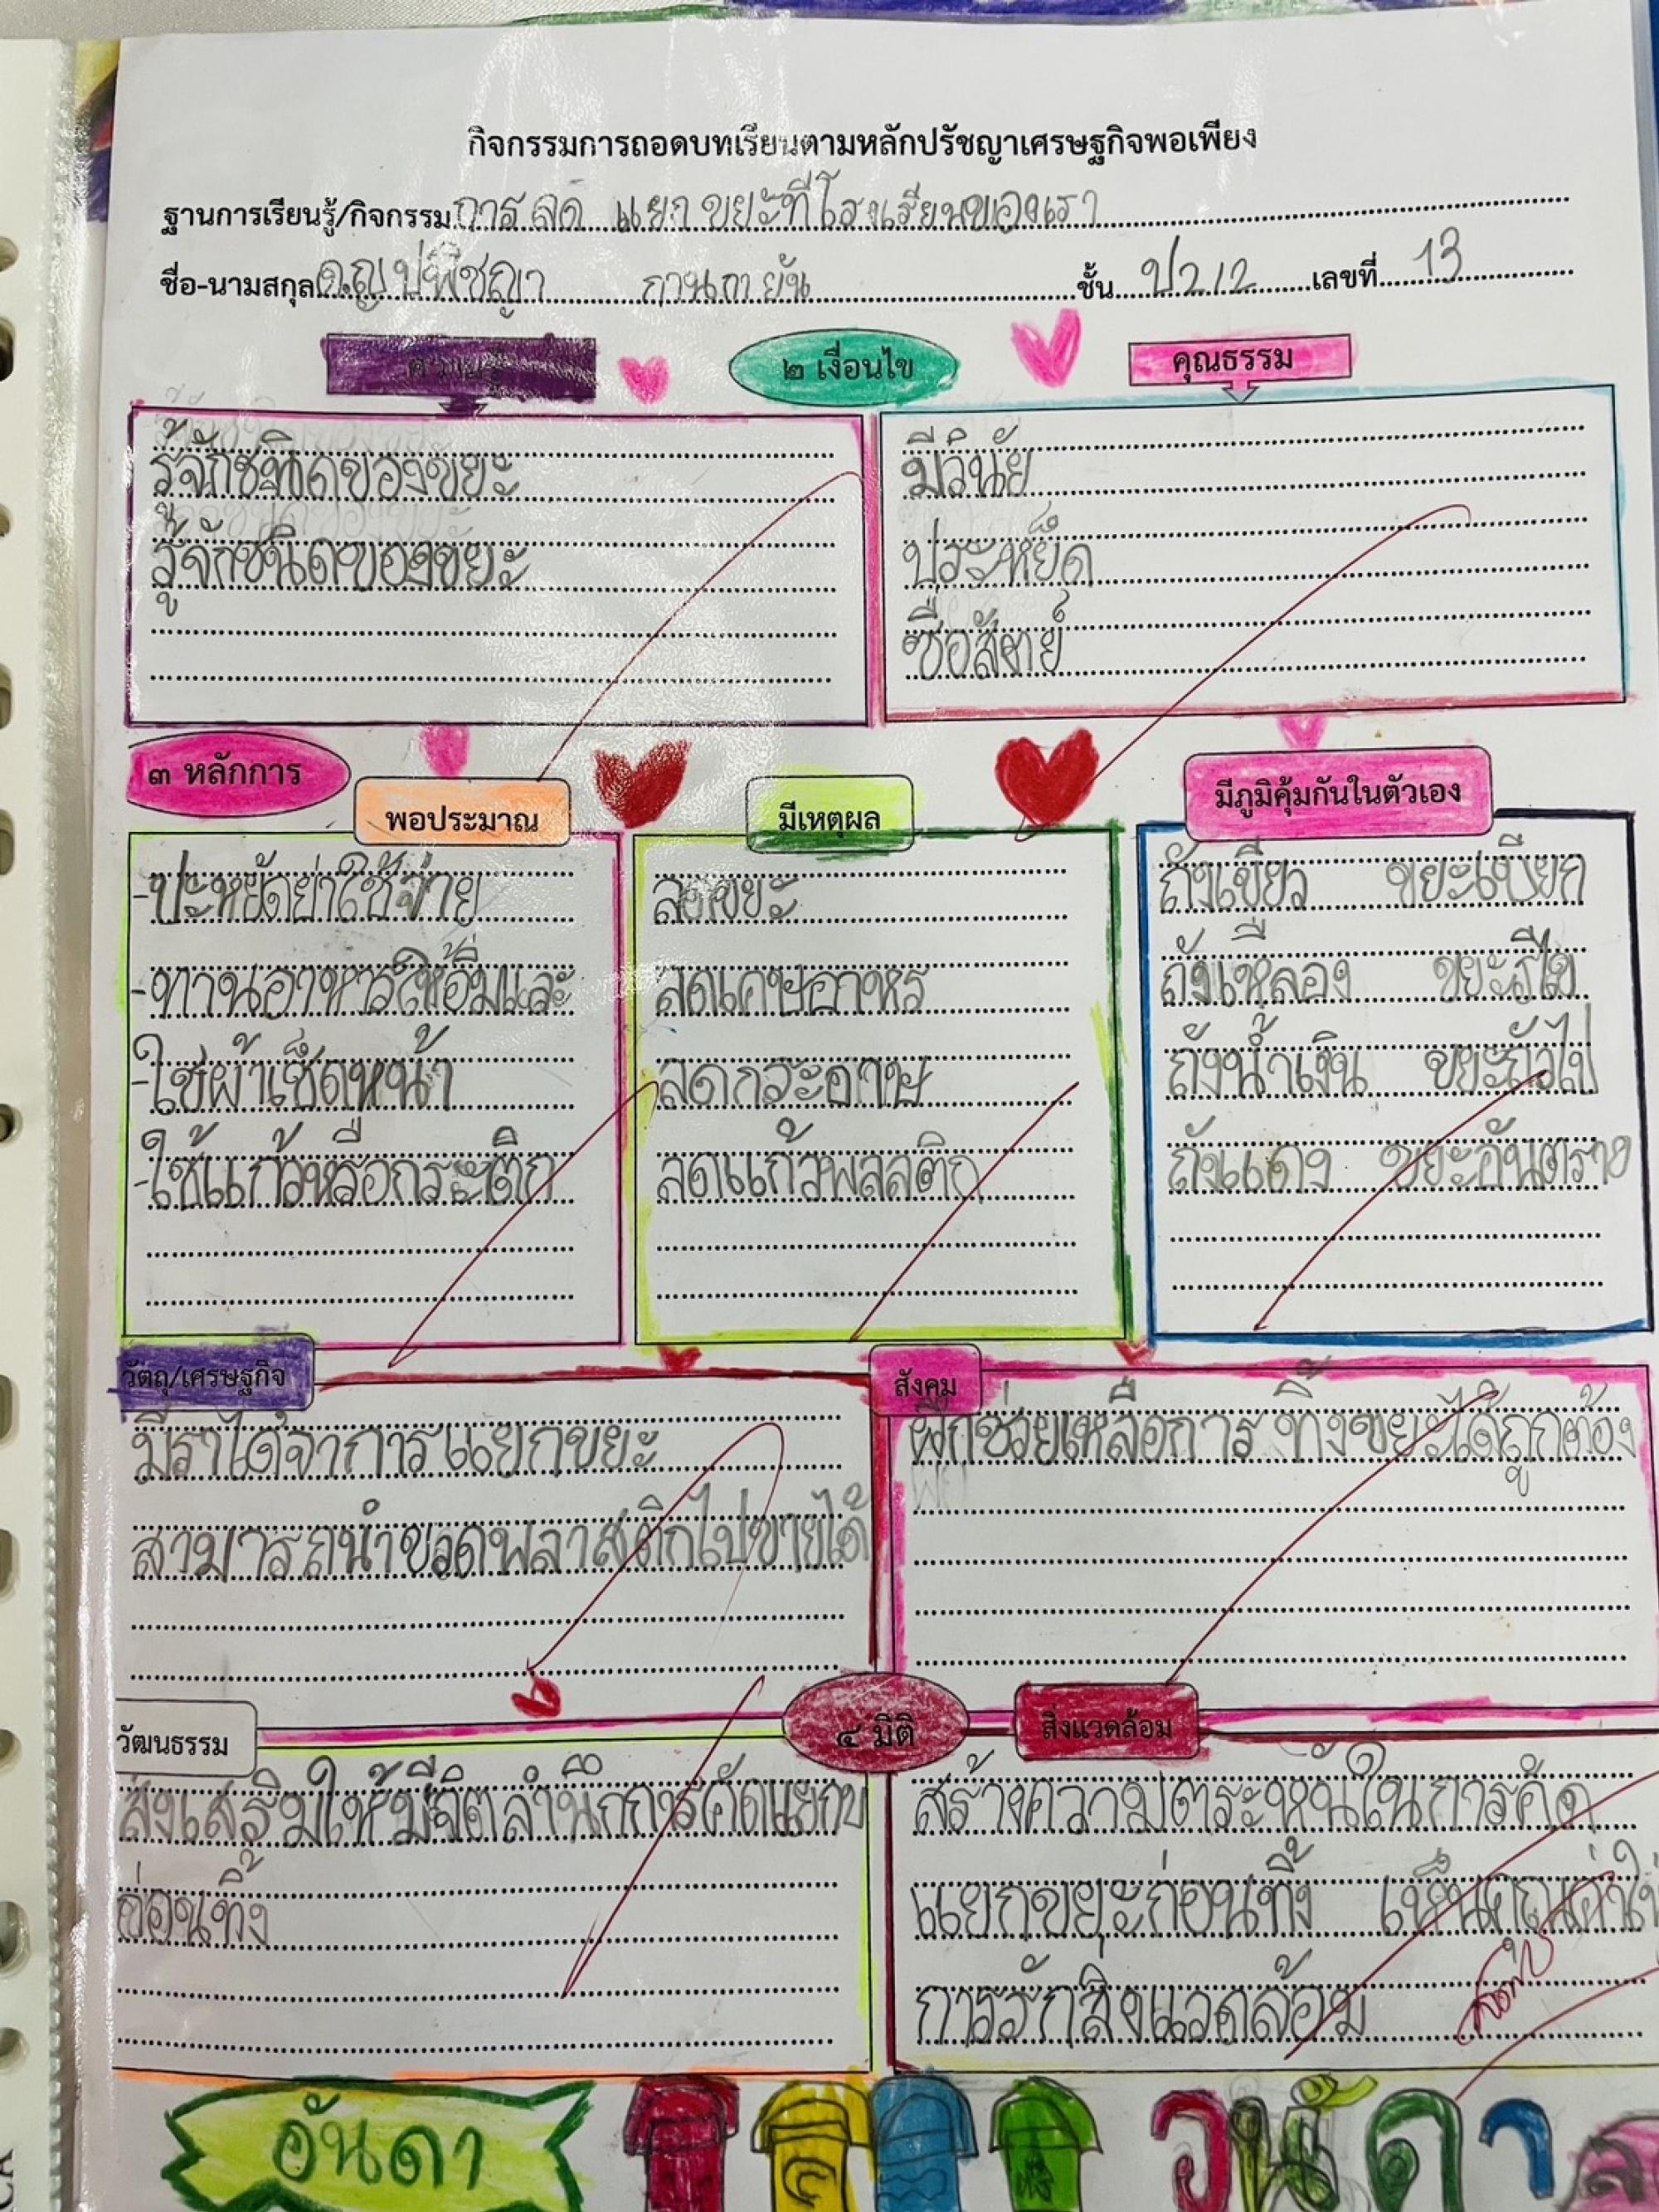 กิจกรรมการถอดบทเรียนตามหลักปรัชญาเศรษฐกิจพอเพียง
ฐานการเรียนรู้/กิจกรรม การลด แยกขยะที่โรงเรียนของเรา
ชื่อ-นามสกุล ด.ญ ปพิชญา กานกายัน ชั้น ป2/2 เลขที่ 13
ความรู้ ๒ เงื่อนไข คุณธรรม
รู้จักชนิดของขยะ
รู้จักชนิดของขยะ
มีวินัย
ประหยัด
ซื่อสัตย์
๓ หลักการ
พอประมาณ
-ปะหยัดย่าใช้จ่าย
-ทานอาหารให้อิ่มและ
-ใช่ผ้าเช็ดหน้า
-ใช้แก้วหรือกระติก
มีเหตุผล
ลดขยะ
ลดเศษอาหร
ลดกระอาษ
ลดแก้วพลลติก
มีภูมิคุ้มกันในตัวเอง
ถังเขียว ขยะเปียก
ถังเหลือง ขยะรีไข
ถังน้ำเงิน ขยะถัวไป
ถังแดง ขยะอันตราง
วัตถุ/เศรษฐกิจ
มีราได้จาการแยกขยะ
สามารถนำขวดพลาสติกไปขายได้
สังคม
ฝึกช่วยเหลือการ ทิ้งขยะได้ถูกต้อง
๔ มิติ
วัฒนธรรม
ส่งเสริมให้มีจิตสำนึกการคัดแยกข
ก่อนทิ้ง
สิ่งแวดล้อม
สร้างความตระหนัในการคัด
แยกขยะก่อนทิ้ง เห็นคุณค่าใน
การรักสิ่งแวดล้อม
อันดา